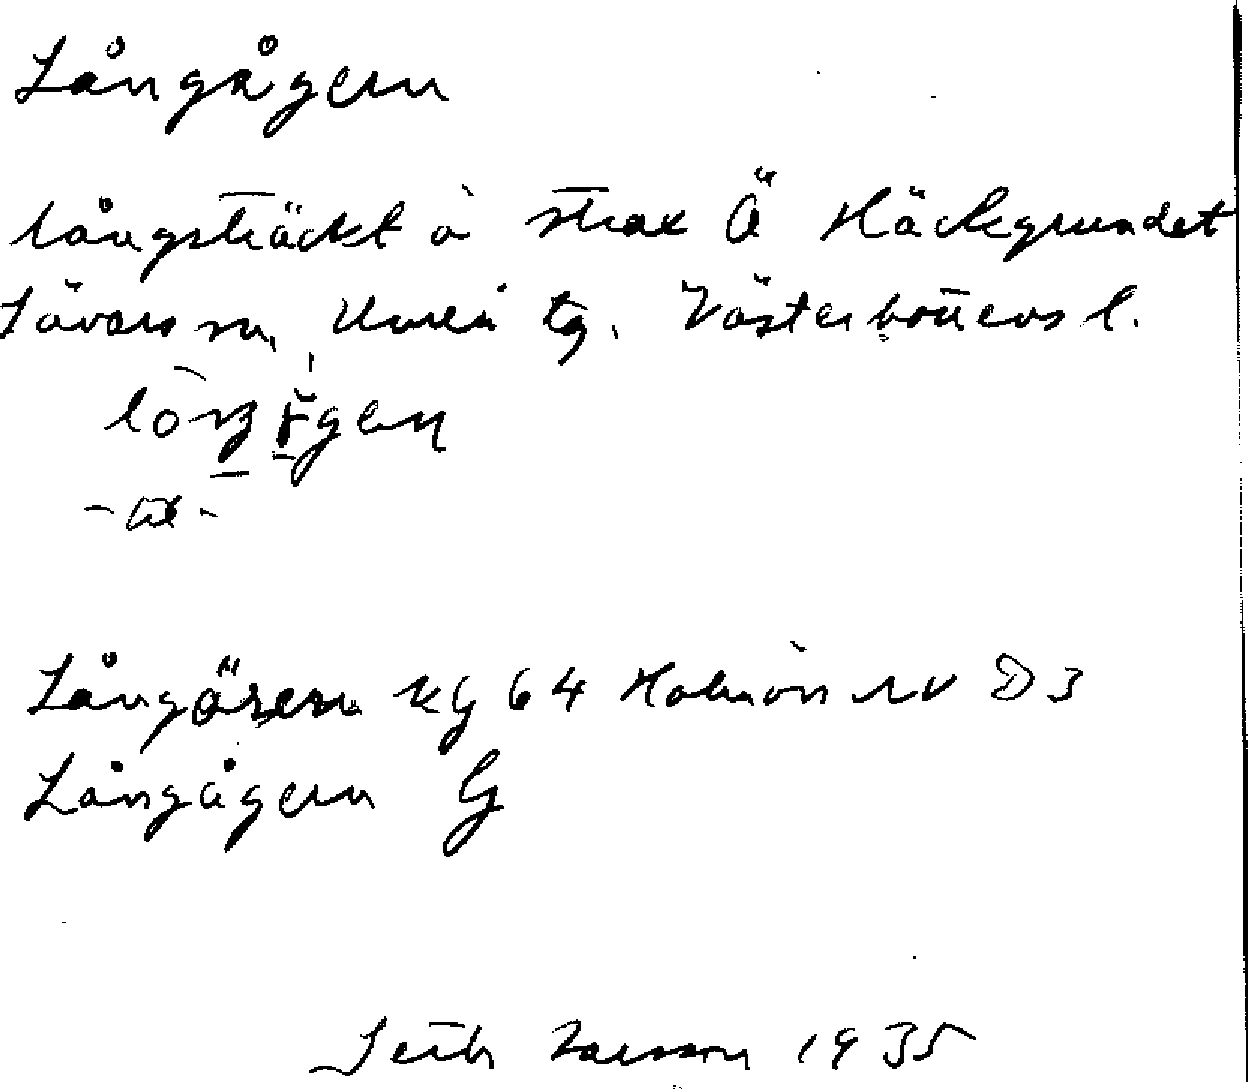 Långågern
långsträckt å strax Ö Häckgrundet
Sävars sn, Umeå tg. Västerbottens l.
Långörern kg 64 Holmön NV D 3
Långågern G
Seth Larsson 1935